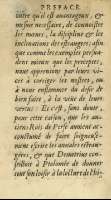 PREFACE.
outre qu'il est avantageux, &
mesme necessaire, de connoistre
les mœurs, la discipline & les
inclinations des estrangers, afin
que comme les exemples persua-
dent mieux que les preceptes,
nous apprenions par leurs vi-
ces à corriger les nostres, ou
à nous enflammer du desir de
bien faire, à la veuë de leurs
vertus. Et c'est, sans doute,
pour cette raison, que les an-
ciens Rois de Perse avoient ac-
coustumé de faire soigneuse-
ment écrire les annales estran-
geres, & que Demetrius con-
seilloit à Ptolomée de donner
tout son loisir à la lecture de l'hi-